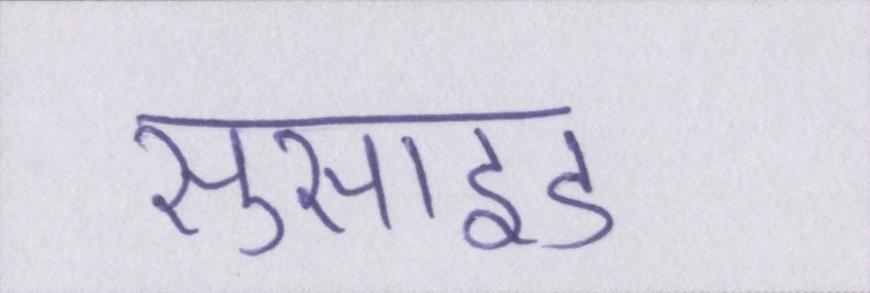 सुसाइड